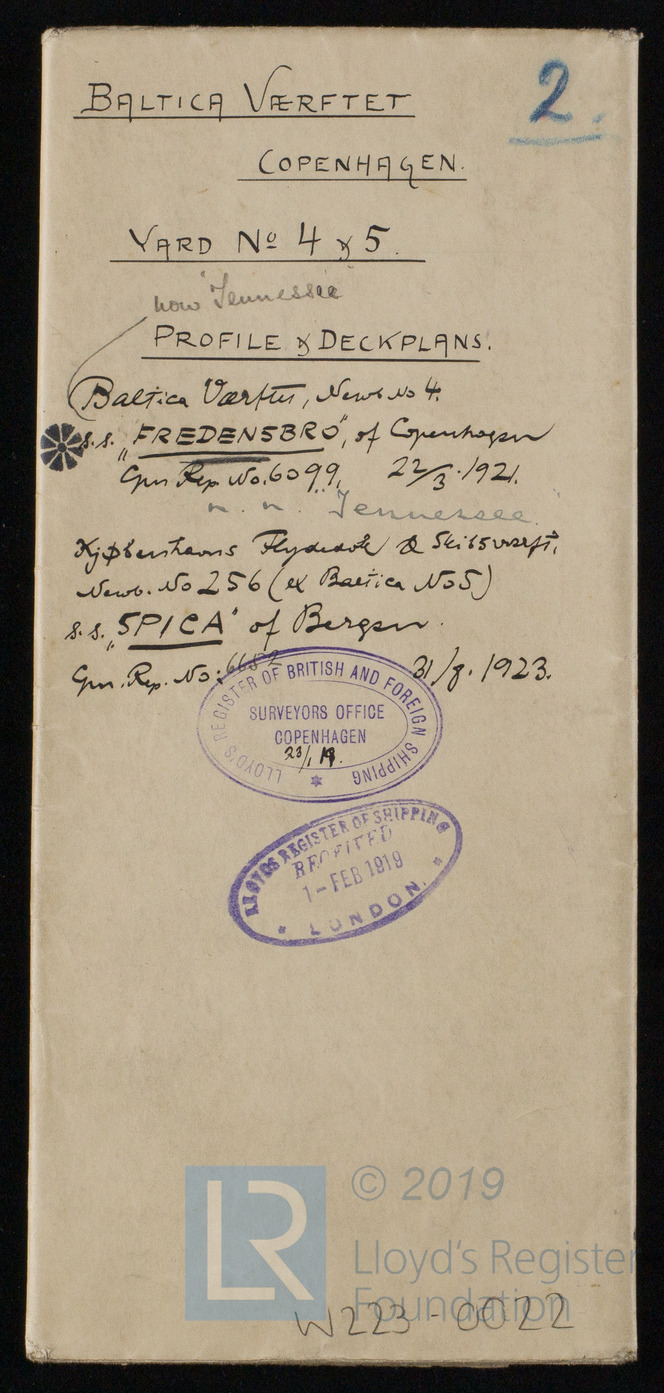 BALTICA VÆRFTET
2.
COPENHAGEN.
YARD Nº 4 & 5.
now "Tennessee"
PROFILE & DECKPLANS.
Baltica Værftet, Newb. No 4.
s.s. "FREDENSBRO", of Copenhagen
Gpn Rep. No. 6099. 22/3. 1921.
n. n. Tennessee.
Kjøbenhavns Flydedok & Skibsværft,
Newb. No 256 (ex Baltica No 5)
s.s. "SPICA" of Bergen.
Gpn. Rep. No: 6652 31/8. 1923.
LLOYD'S REGISTER OF BRITISH AND FOREIGN SHIPPING
SURVEYORS OFFICE
COPENHAGEN
23/1 19.
LLOYDS REGISTER OF SHIPPING
RECEIVED
1 - FEB 1919
LONDON.
LR
© 2019
Lloyd's Register
Foundation
W223-0022